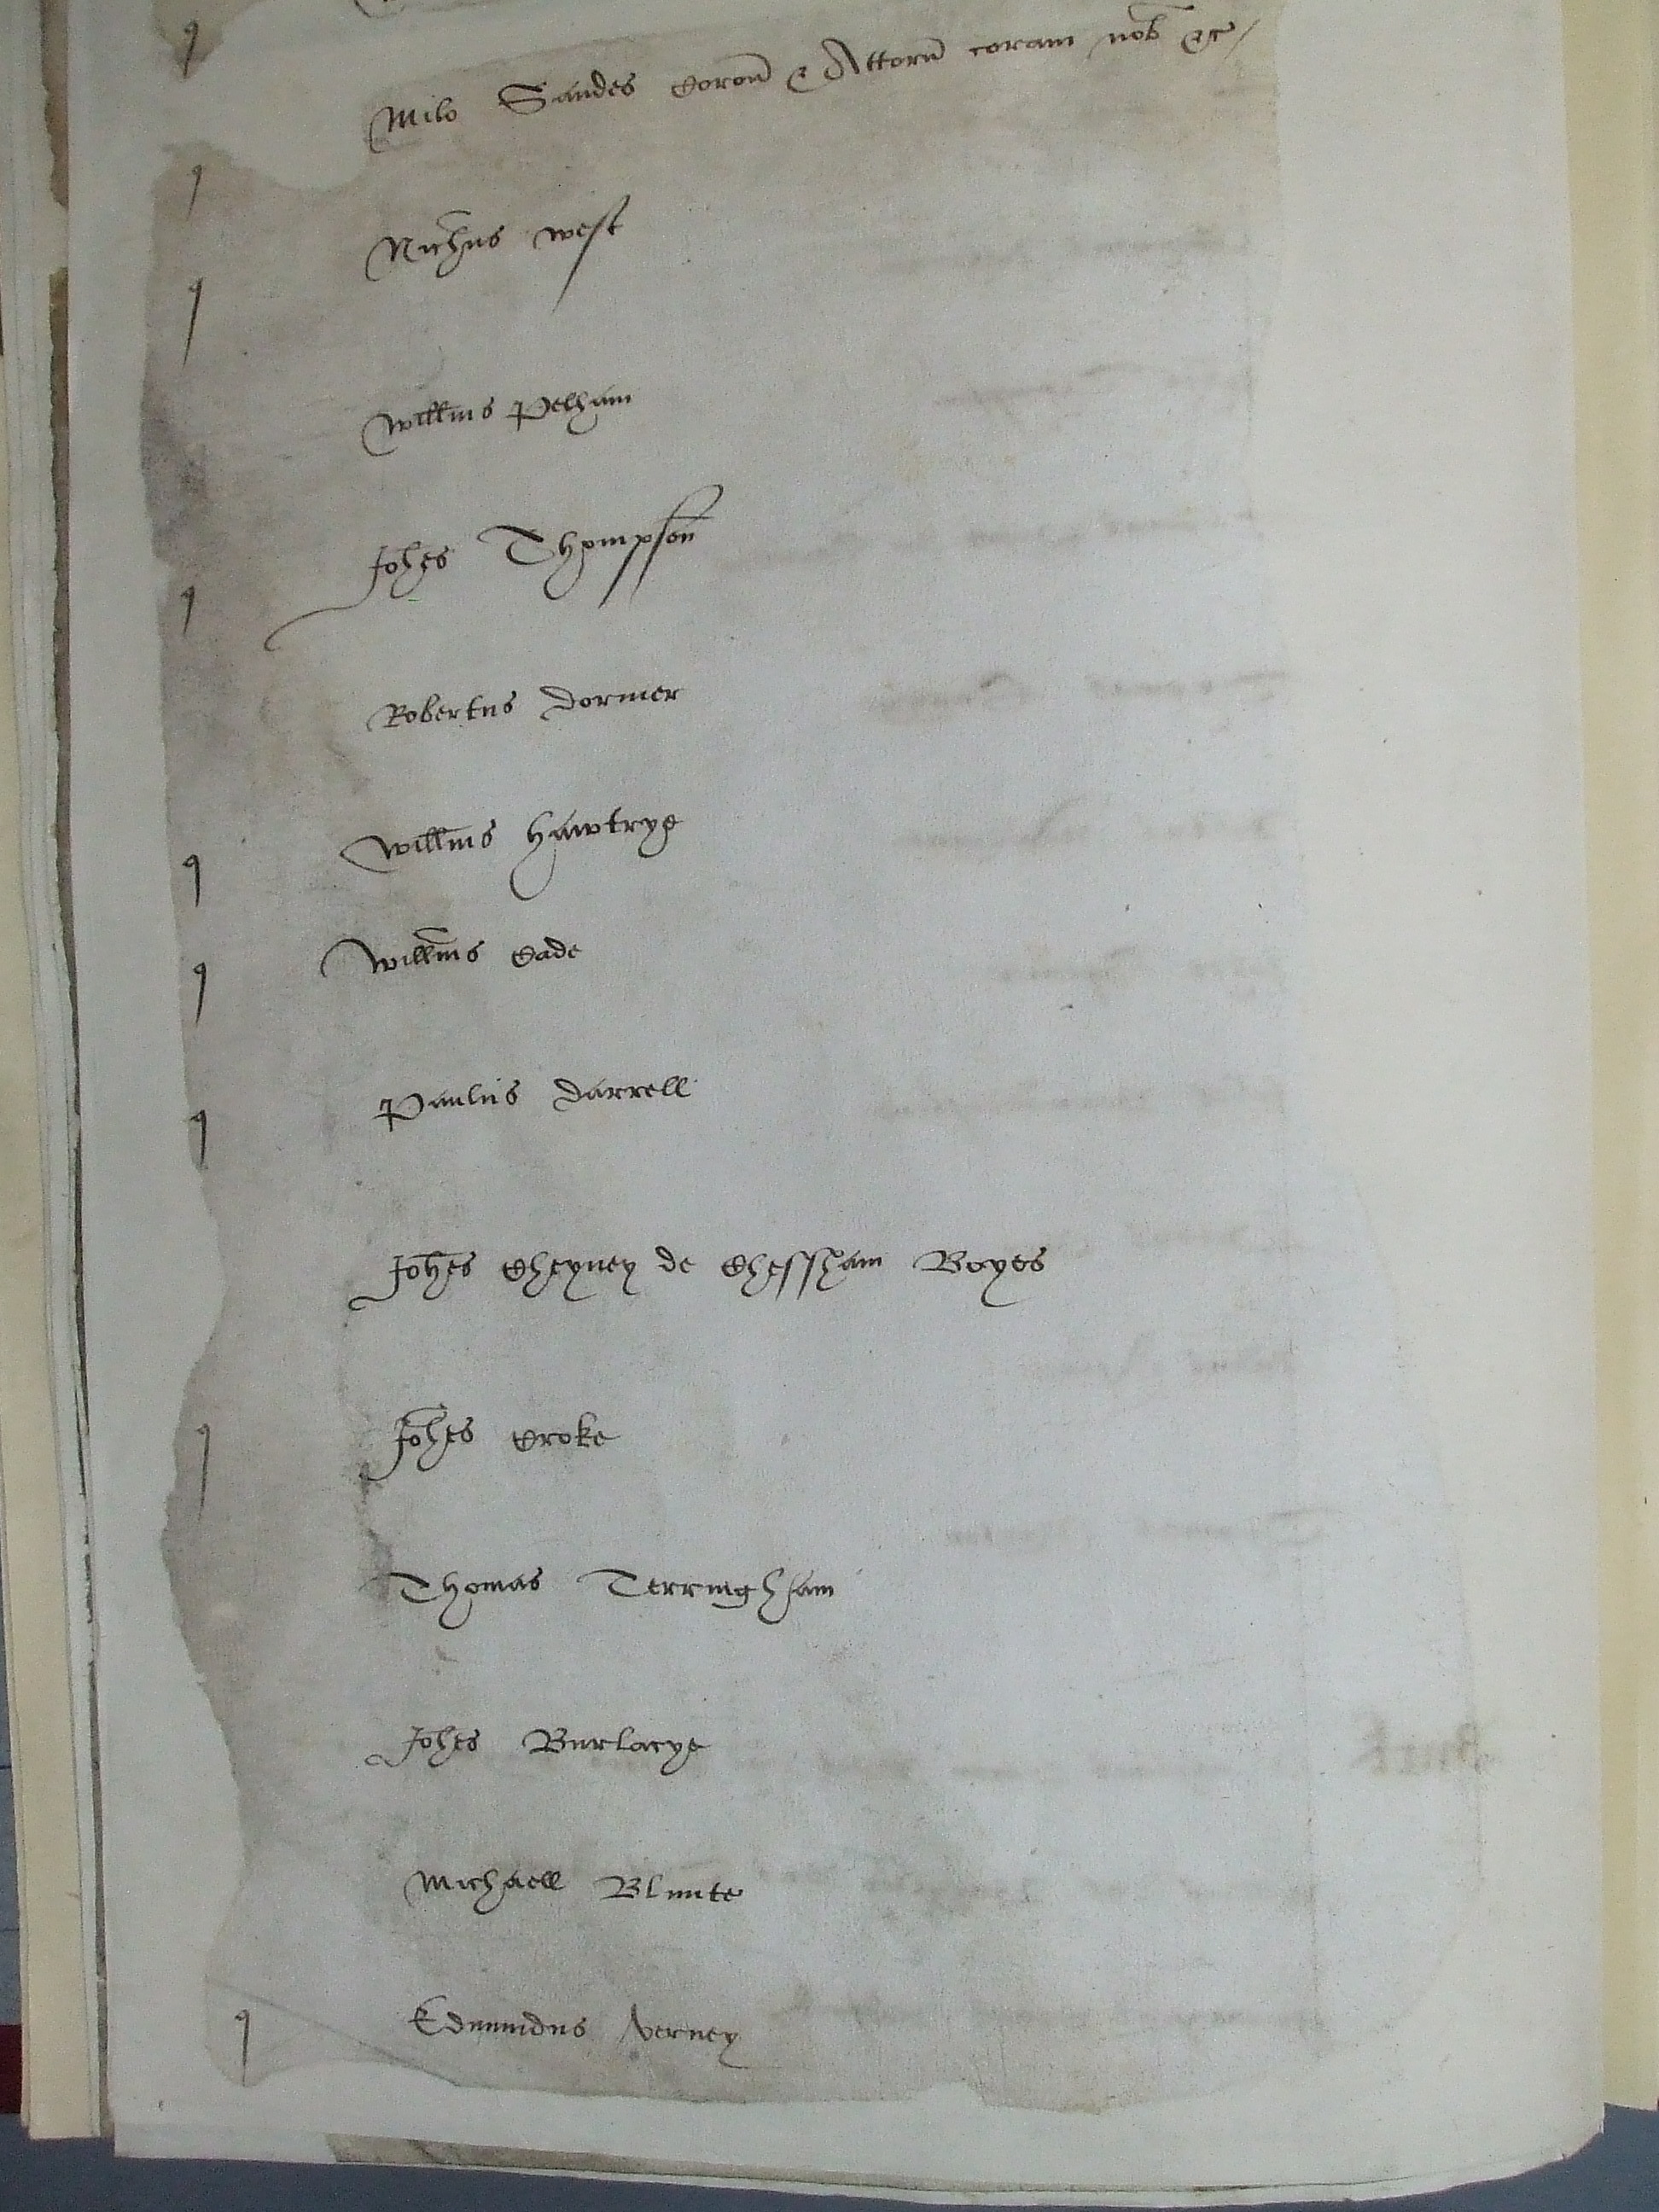 Milo Sandes Coron & Attorn coram nob &c
Nichus West
Willms Pelham
Johes Thompson
Robertus Dormer
Willms Hawtrye
Willms Cade
Paulus Darrell
Johes Cheyney de Chessham Boyes
Johes Croke
Thomas Terringham
Johes Burlacye
Michaell Blunte
Edmundus Verney